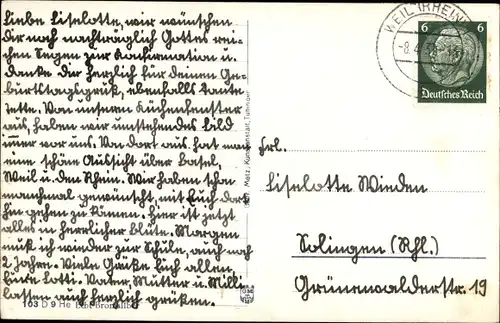 Liebe Liselotte, wir wünschen
dir noch nachträglich Gottes rei-
chen Segen zur Konfirmation u.
danke dir herzlich für deinen Ge-
burtstagsgruß, ebenfalls Tante
Jette. Von unserem Küchenfenster
aus, haben wir umstehendes Bild
imer vor uns. Von dort aus hat man
eine schöne Aussicht über Basel,
Weil u. den Rhein. Wir haben schon
manchmal gewünscht, mit Euch dort
hin gehen zu könen. Hier ist jetzt
alles in herrlicher Blüte. Morgen
muß ich wieder zur Schule, auch noch
2 Jahre. Viele Grüße Euch allen,
Eure Lotti. Vater, Mutter u. Milli
lassen auch herzlich grüßen.
103 D 9 He
Metz, Kunstanstalt, Tübingen
WEIL (RHEIN)
6 6
Deutsches Reich
Frl.
Liselotte Wieden
Solingen (Rhl.)
Grünewalderstr. 19